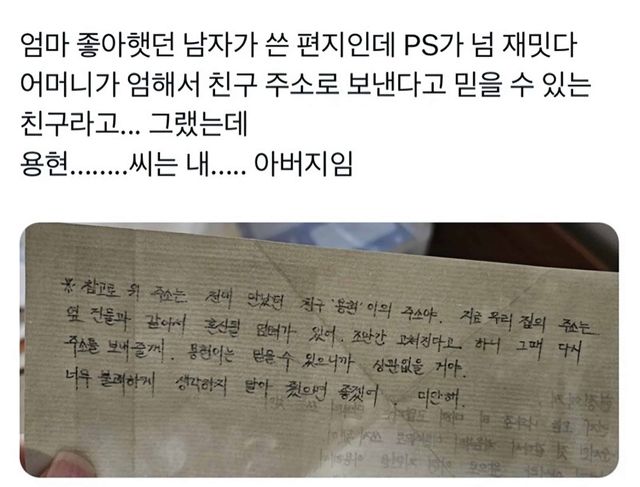 엄마 좋아햇던 남자가 쓴 편지인데 PS가 넘 재밋다
어머니가 엄해서 친구 주소로 보낸다고 믿을 수 있는
친구라고... 그랬는데
용현........씨는 내..... 아버지임
※ 참고로 위 주소는 전에 만났던 친구 '용현'이의 주소야. 지금 우리 집의 주소는
옆 건물과 같아서 혼신될 염려가 있어. 조만간 고쳐진다고 하니 그때 다시
주소를 보내줄게. 용현이는 믿을 수 있으니까 상관없을 거야.
너무 불쾌하게 생각하지 말아 줬으면 좋겠어. 미안해.